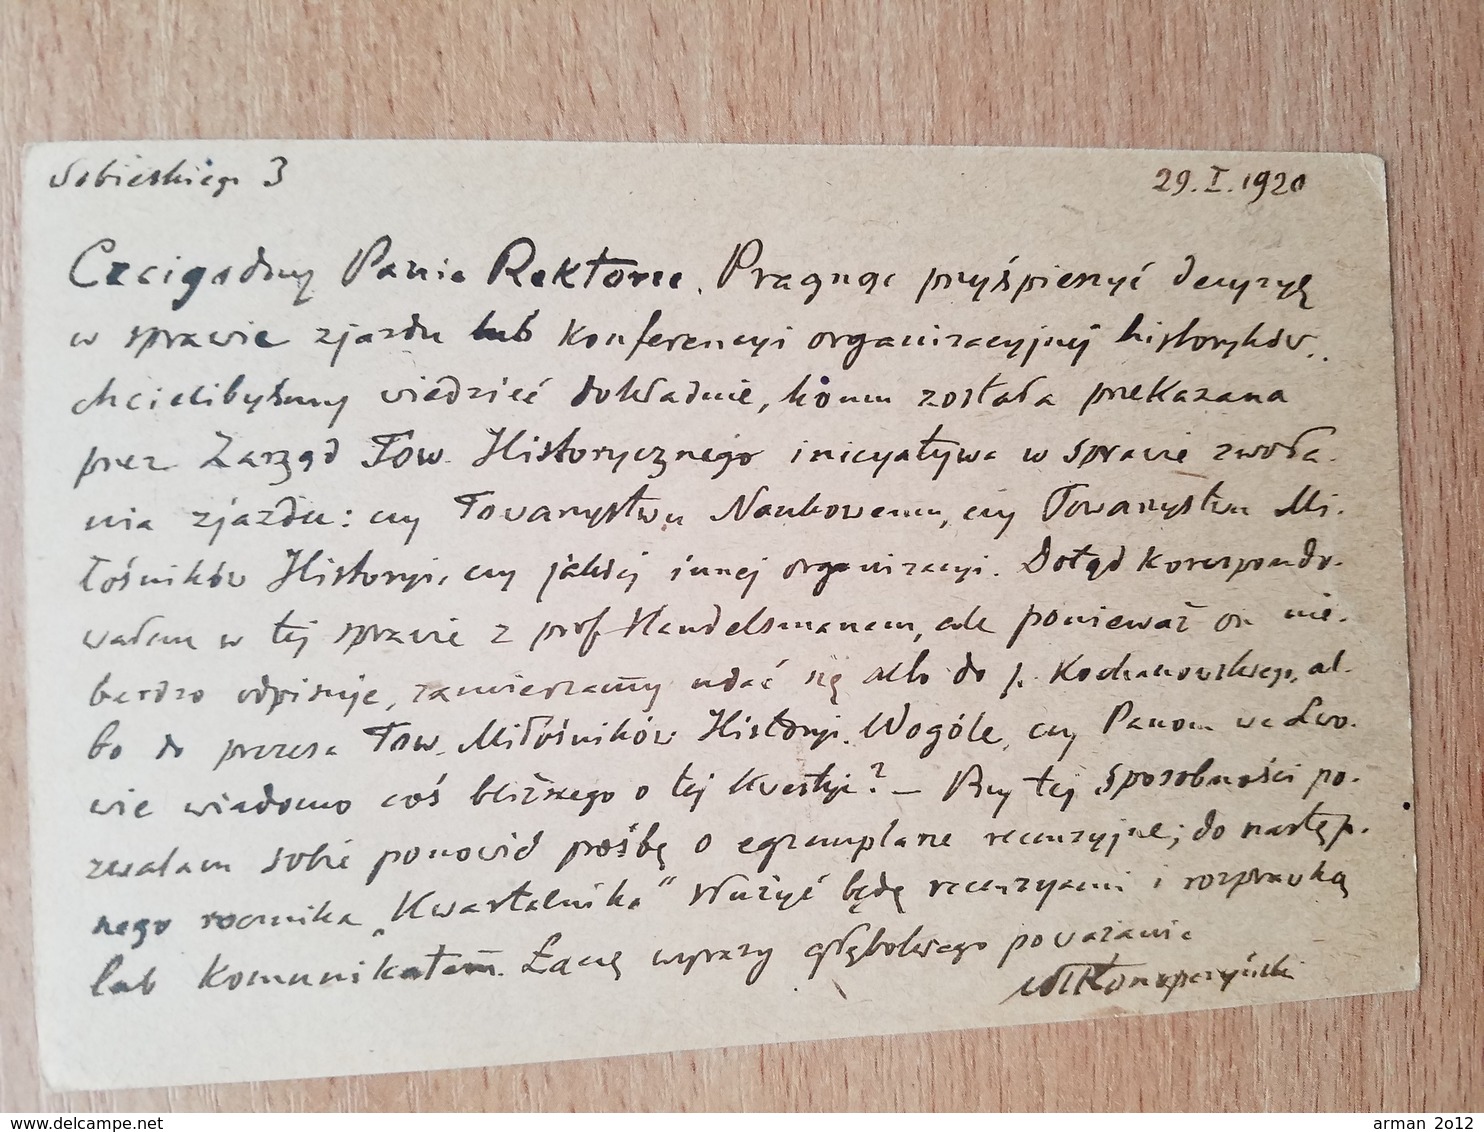 Sobieskiego 3
29.I.1920
Czcigodny Panie Rektorze. Pragnąc przyśpieszyć decyzyę
w sprawie zjazdu lub konferencyi organizacyjnej historyków,
chcielibyśmy wiedzieć dokładnie, komu została przekazana
przez Zarząd Tow. Historycznego inicyatywa w sprawie zwoła-
nia zjazdu: czy Towarzystwu Naukowemu, czy Towarzystwu Mi-
łośników Historyi, czy jakiej innej organizacyi. Dotąd korespondo-
wałem w tej sprawie z prof Handelsmanem, ale ponieważ on nie-
bardzo odpisuje, zamierzamy udać się albo do p. Kochanowskiego, al-
bo do prezesa Tow. Miłośników Historyi. Wogóle, czy Panom we Lwo-
wie wiadomo coś bliższego o tej kwestyi? — Przy tej sposobności po-
zwalam sobie ponowić prośbę o egzemplarze recenzyjne; do następ-
nego rocznika „Kwartalnika" służyć będę recenzyami i rozprawką
lub komunikatem. Łączę wyrazy głębokiego poważania
WKonopczyński
delcampe.net
arman_2o12